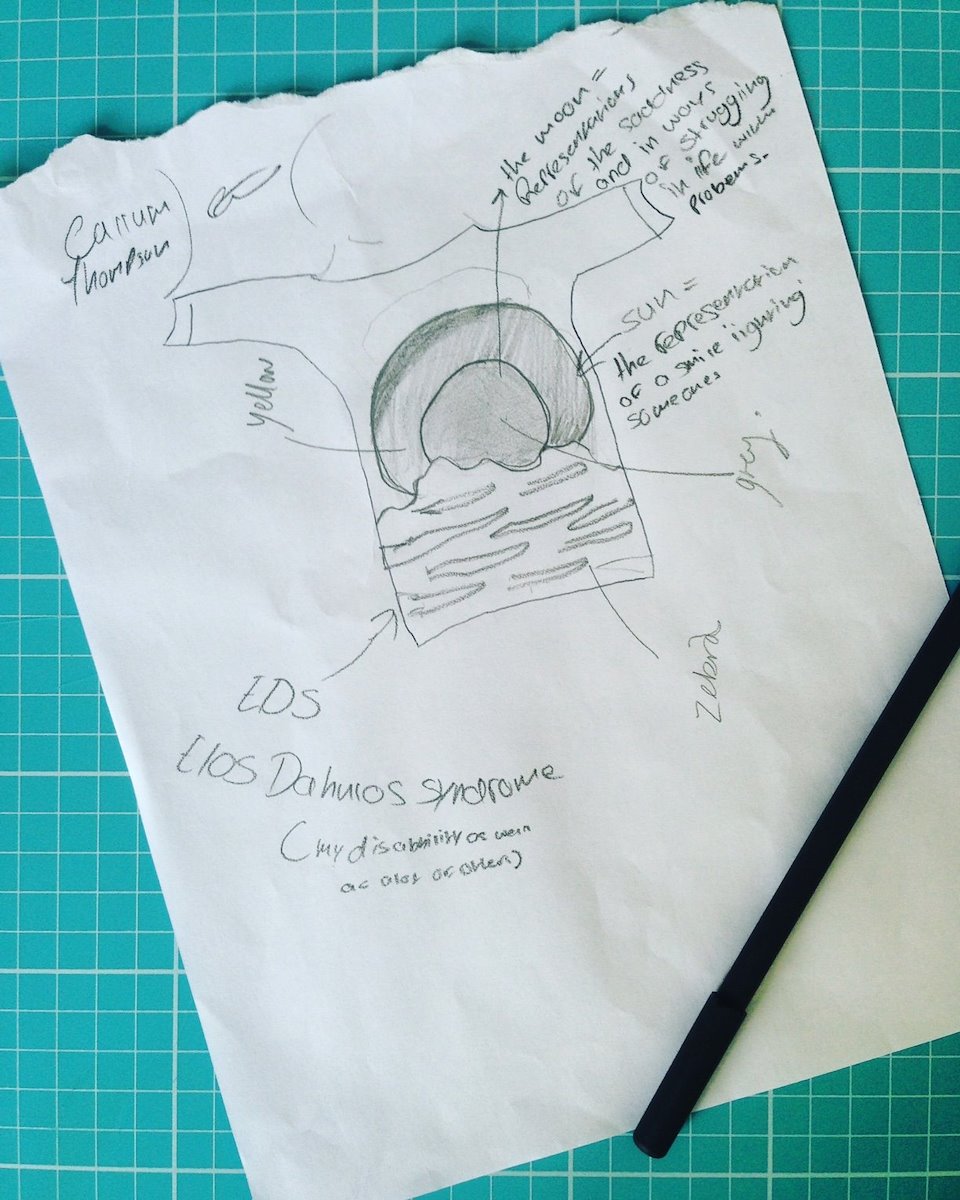 Callum
Thompson
the moon =
Representations
of the saddness
and in ways
of struggling
in life with
probems.
sun =
the representation
of a smile
someones
yellow
grey.
zebra
EDS
Elos Dahnlos syndrome
(my disability as well
as alot of others)